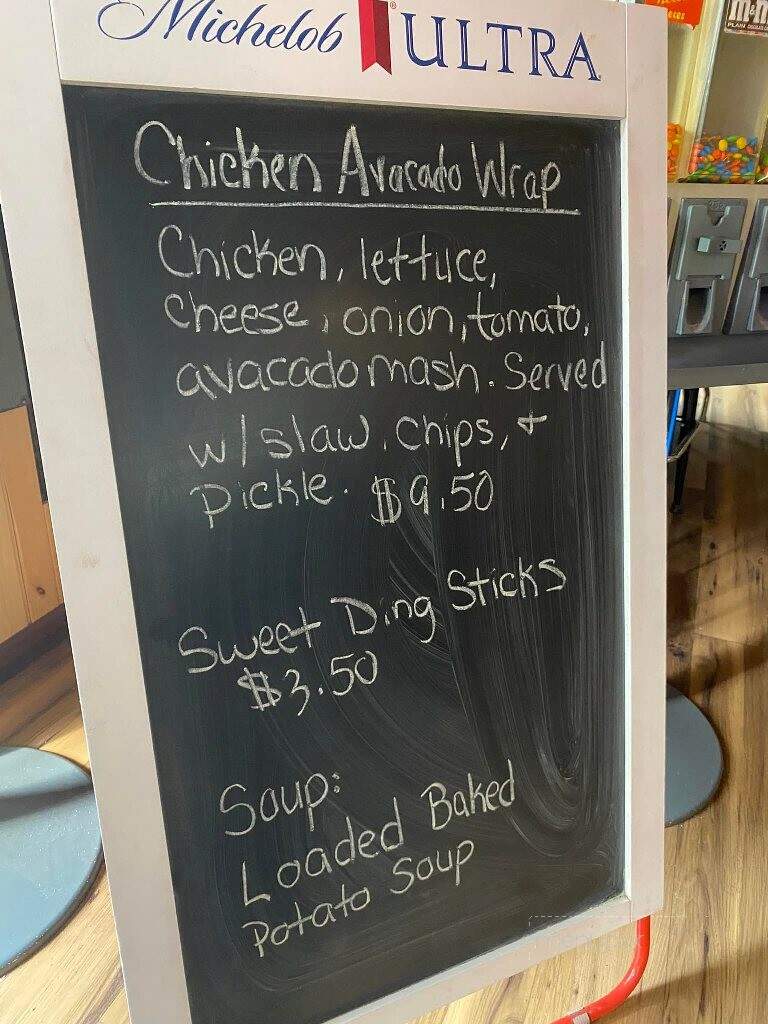 Michelob ULTRA
Chicken Avacado Wrap
Chicken, lettuce,
cheese, onion, tomato,
avacado mash. Served
w/ slaw, chips, +
pickle. $9.50
Sweet Ding Sticks
$3.50
Soup:
Loaded Baked
Potato Soup
m&m
PLAIN